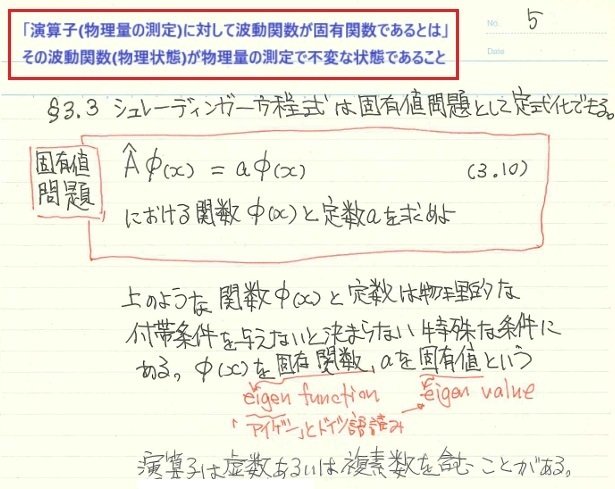 「演算子(物理量の測定)に対して波動関数が固有関数であるとは」
その波動関数(物理状態)が物理量の測定で不変な状態であること
No. 5
Date
§3.3 シュレーディンガー方程式は固有値問題として定式化できる。
固有値
問題
Âϕ(x) = aϕ(x) (3.10)
における関数ϕ(x)と定数aを求めよ
上のような関数ϕ(x)と定数は物理的な
付帯条件を与えないと決まらない特殊な条件に
ある。ϕ(x)を固有関数、aを固有値という
eigen function eigen value
「アイゲン」とドイツ語読み
演算子は虚数あるいは複素数を含むことがある。